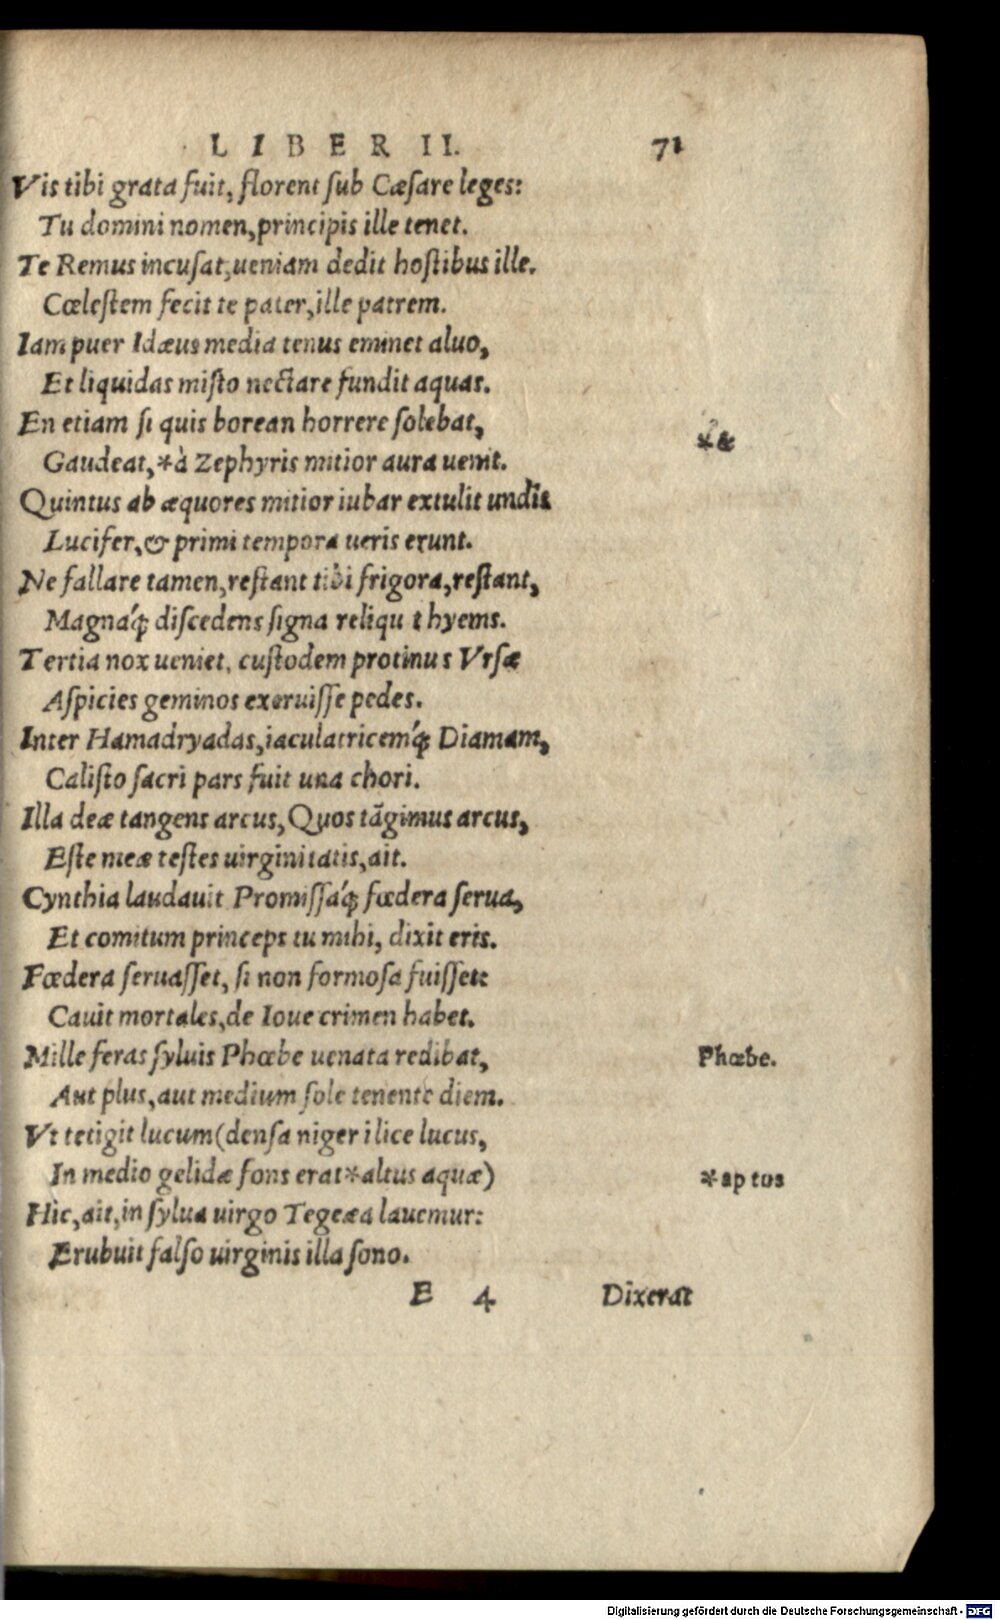 LIBER II. 71
Vis tibi grata fuit, florent ſub Cæſare leges:
Tu domini nomen, principis ille tenet.
Te Remus incuſat, ueniam dedit hoſtibus ille.
Cœleſtem fecit te pater, ille patrem.
Iam puer Idæus media tenus eminet aluo,
Et liquidas miſto nectare fundit aquas.
En etiam ſi quis borean horrere ſolebat,
Gaudeat, *à Zephyris mitior aura uenit. *&
Quintus ab æquores mitior iubar extulit undis
Lucifer, & primi tempora ueris erunt.
Ne fallare tamen, reſtant tibi frigora, reſtant,
Magnaq́; diſcedens ſigna reliqu t hyems.
Tertia nox ueniet, cuſtodem protinus Vrſæ
Aſpicies geminos exeruiſſe pedes.
Inter Hamadryadas, iaculatricemq́; Dianam,
Caliſto ſacri pars fuit una chori.
Illa deæ tangens arcus, Quos tāgimus arcus,
Eſte meæ teſtes uirginitatis, ait.
Cynthia laudauit Promiſſaq́; fœdera ſerua,
Et comitum princeps tu mihi, dixit eris.
Fœdera ſeruaſſet, ſi non formoſa fuiſſet:
Cauit mortales, de Ioue crimen habet.
Mille feras ſyluis Phœbe uenata redibat, Phœbe.
Aut plus, aut medium ſole tenente diem.
Vt tetigit lucum (denſa niger ilice lucus,
In medio gelidæ fons erat *altus aquæ) *ap tus
Hic, ait, in ſylua uirgo Tegeæa lauemur:
Erubuit falſo uirginis illa ſono.
E 4 Dixerat
Digitalisierung gefördert durch die Deutsche Forschungsgemeinschaft - DFG